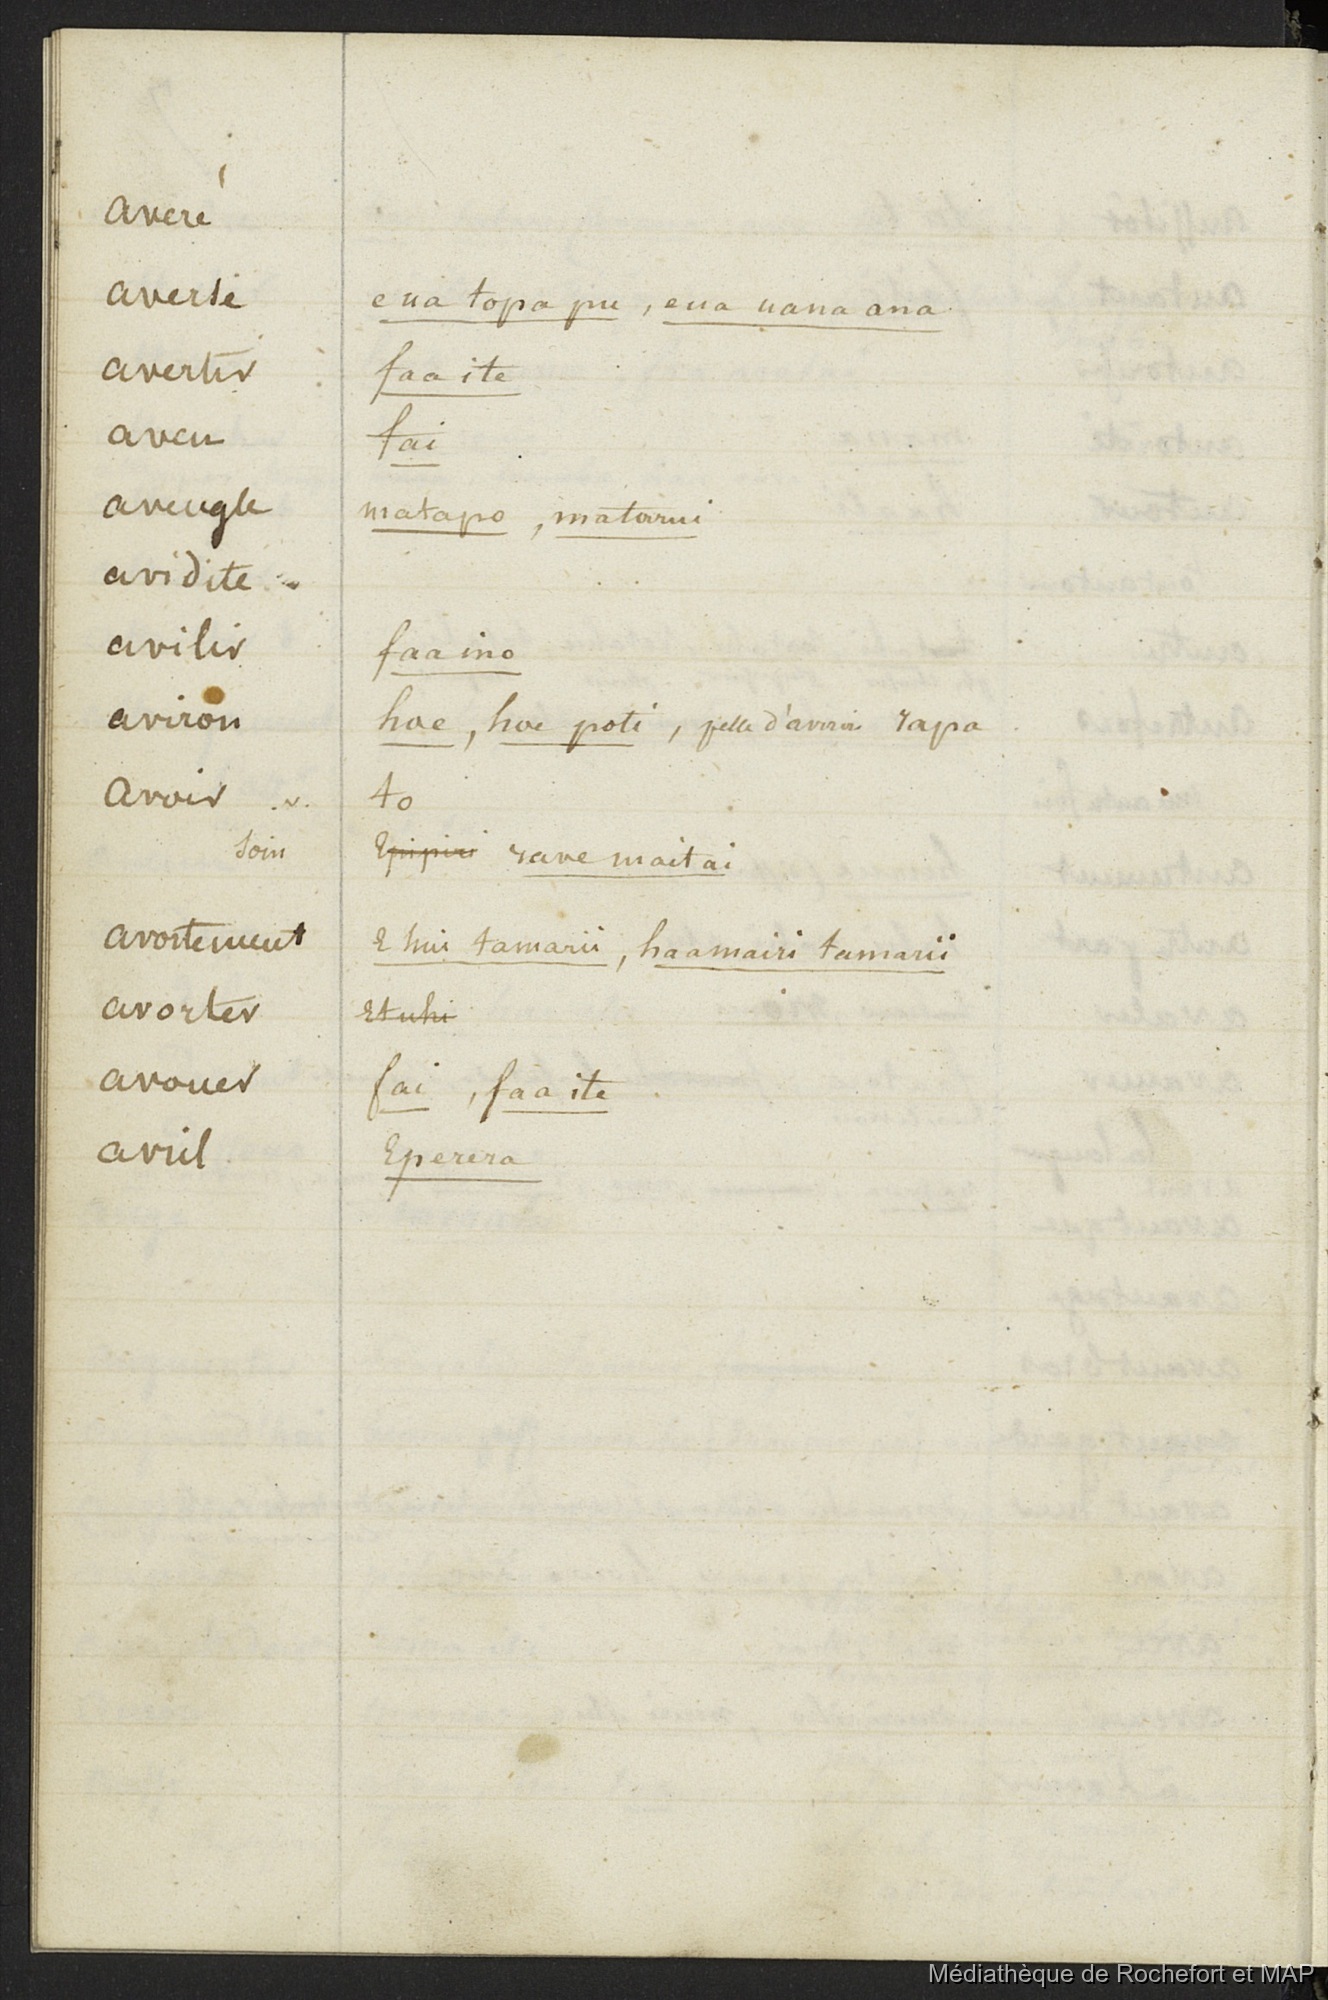 averé
averse e ua topa pu, eua uanaana
avertir faaite
aveu fai
aveugle matapo, matarui
avidite
avilir faaino
aviron hoe, hoe poti, pelle d'aviron rapa
avoir .v. to
soin Epipiri rave maitai
avortement E hui tamarii, haamairi tamarii
avorter Etuhi
avouer fai, faaite
avril Eperera
Médiathèque de Rochefort et MAP